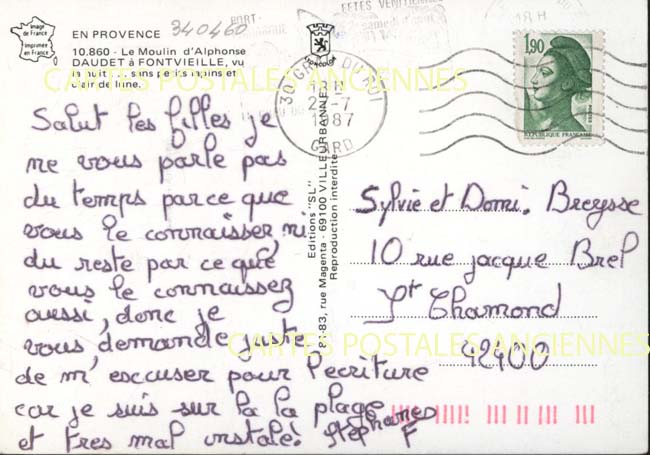 Image de France
Imprimée en France
EN PROVENCE
340460
10.860 - Le Moulin d'Alphonse
DAUDET à FONTVIEILLE, vu
la nuit ... sans petits lapins et
clair de lune.
Salut les filles je
ne vous parle pas
du temps parce que
vous le connaisser, ni
du reste par ce que
vous le connaissez
aussi, donc je
vous demande juste
de m'escuser pour l'ecriture
car je suis sur la la plage
et tres mal instalé! Stéphanes
F
Editions "SL"
81-83, rue Magenta - 69100 VILLEURBANNE
Reproduction interdite
PORT-
FETES VENITIENNES
samedi
18 H
30 GRAU DU ROI
18 H
-7
1987
GARD
1,90
REPUBLIQUE FRANÇAISE
Sylvie et Domi. Breysse
10 rue jacque Brel
St Chamond
42400
CARTES POSTALES ANCIENNES
CARTES POSTALES ANCIENNES